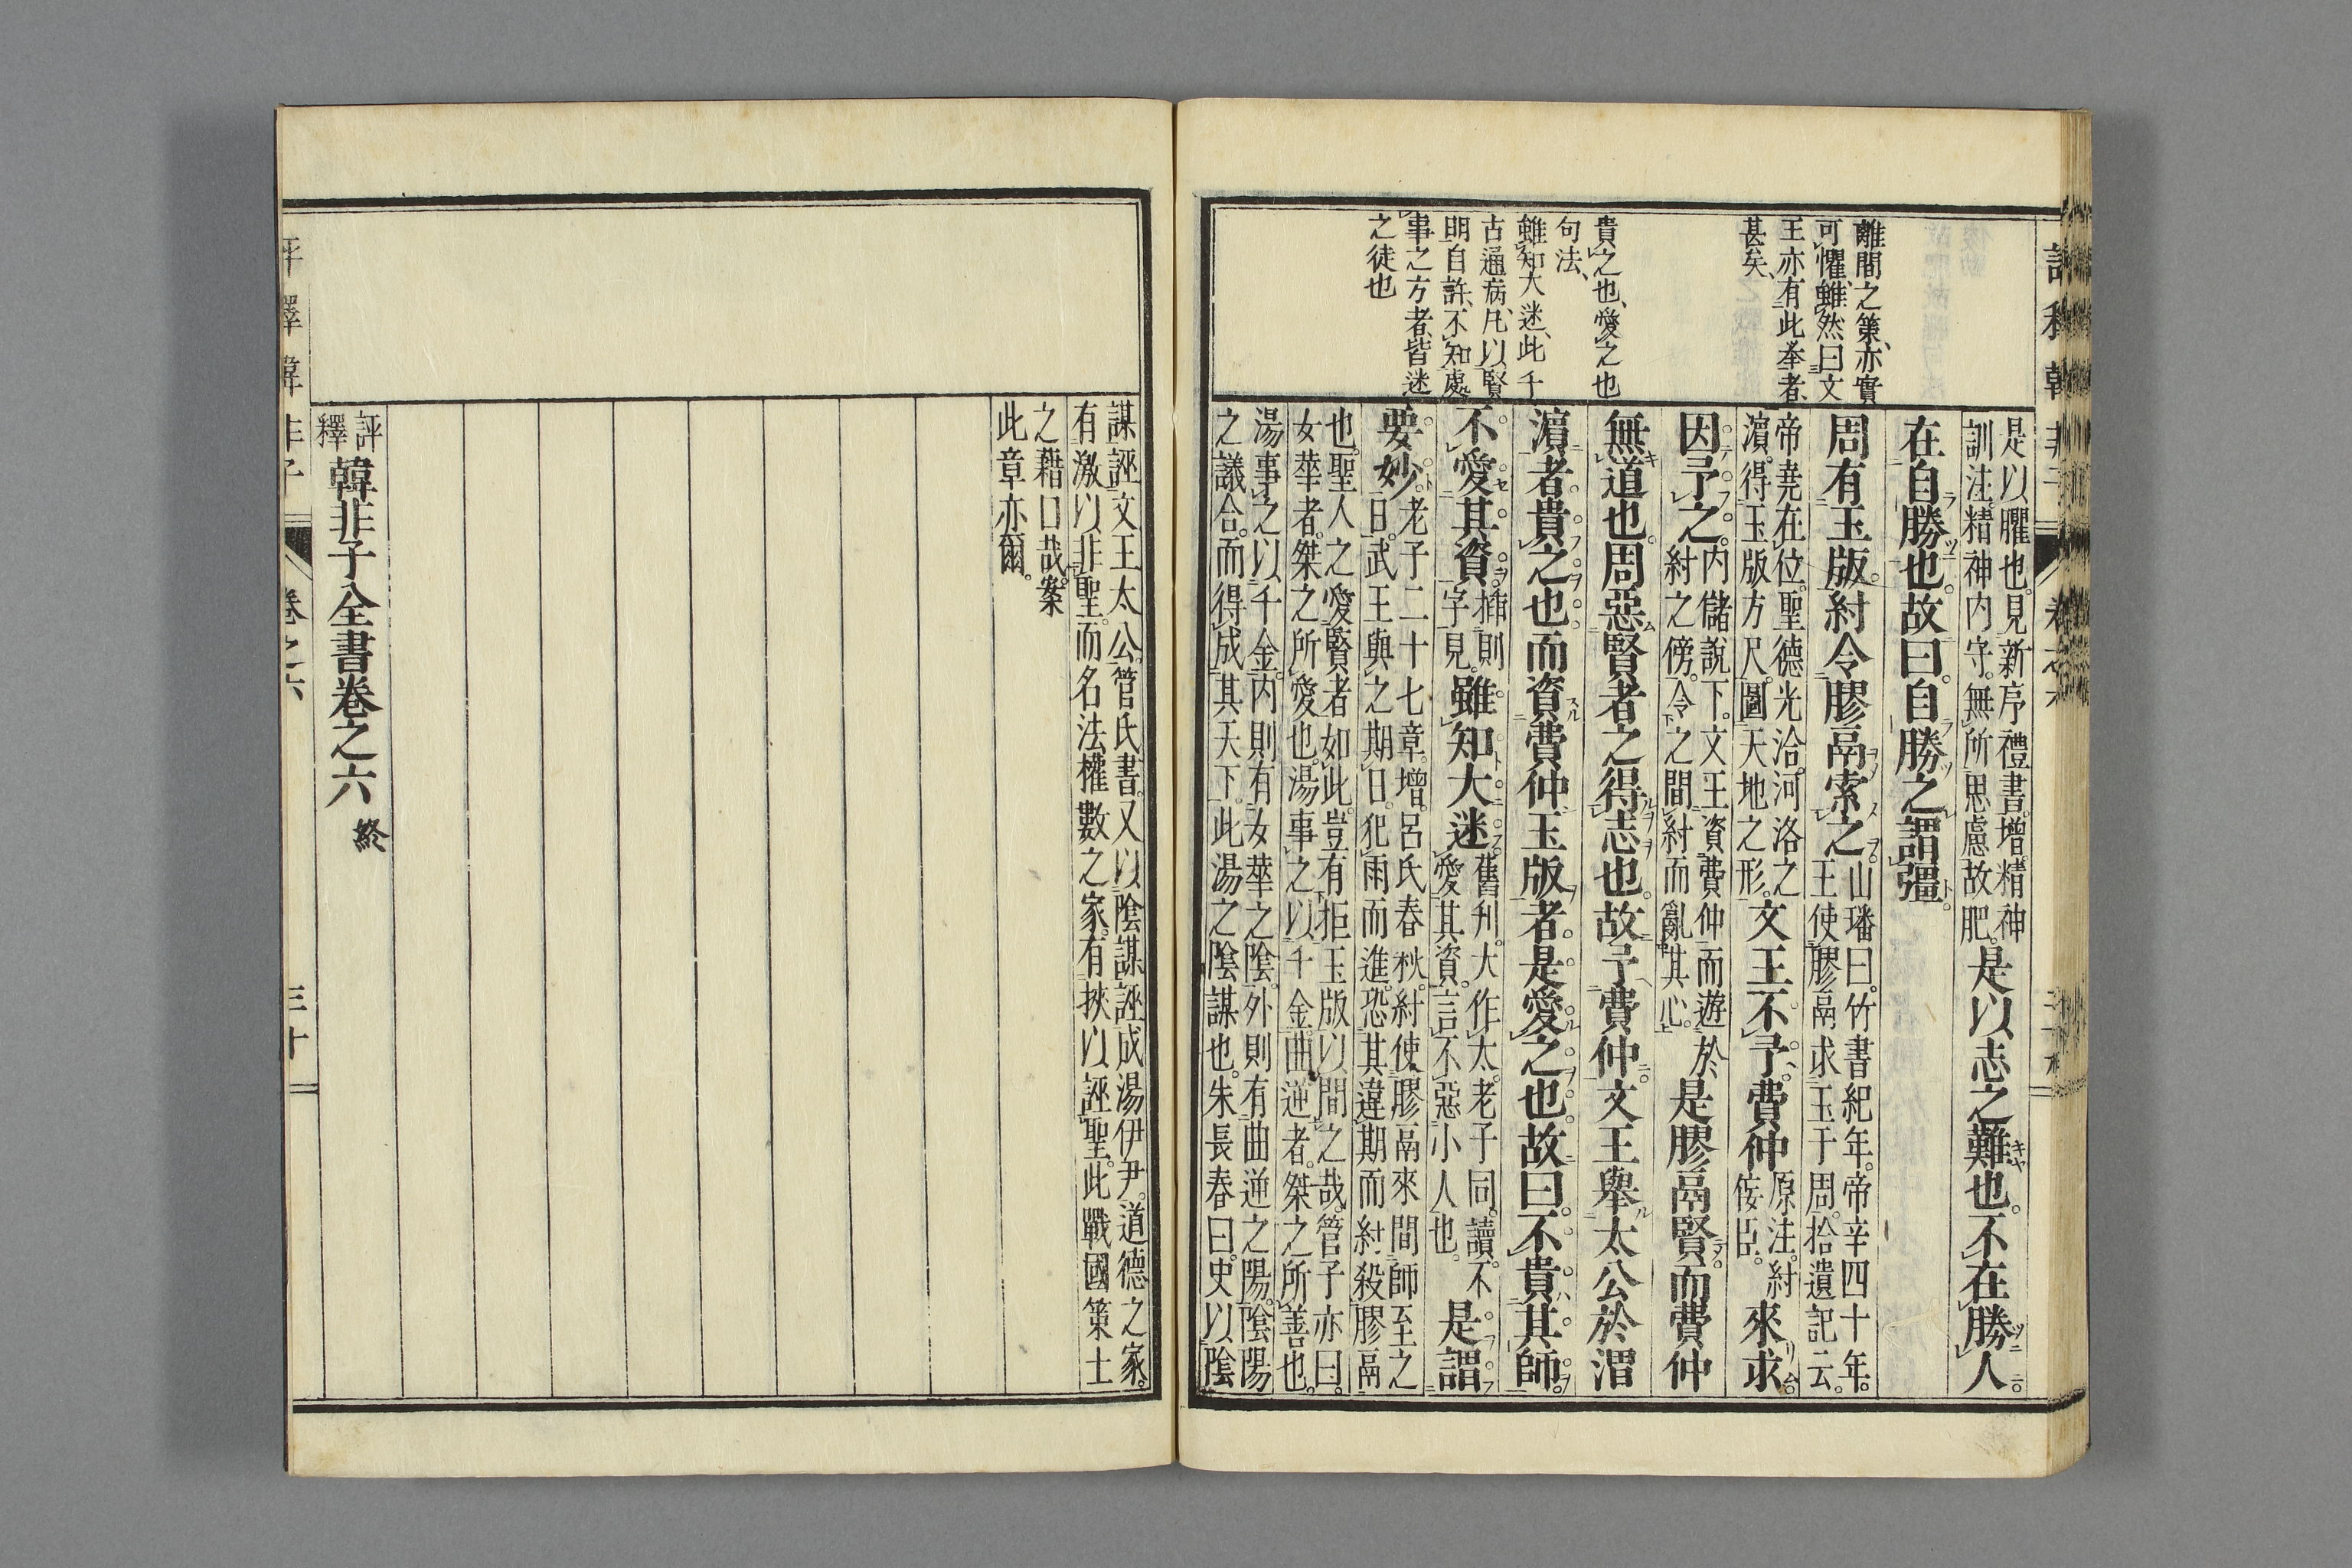 離間之策、亦實
可懼、雖然曰文
王亦有此擧者、
甚矣、
貴之也、愛之也
句法、
雖知大迷、此千
古通病、凡以賢
明自許、不知處
事之方者、皆迷
之徒也
是以臞也。見新序禮書。增。精神
訓注。精神内守。無所思慮故肥。
是以志之難也。不在勝人
在自勝也。故曰。自勝之謂彊。
周有玉版。紂令膠鬲索之。
山璠曰。竹書紀年。帝辛四十年。
王使膠鬲求玉于周。拾遺記云。
帝堯在位。聖德光洽。河洛之
濵。得玉版方尺。圖天地之形。
文王不予。費仲
原注。紂
佞臣。
來求。
因予之。
内儲說下。文王資費仲而遊於
紂之傍。令之間紂而亂其心。
是膠鬲賢而費仲
無道也。周惡賢者之得志也。故予費仲。文王舉太公於渭
濵者。貴之也。而資費仲玉版者。是愛之也。故曰。不貴其師。
不愛其資。
揷則
字見。
雖知大迷。
舊刋大作太。老子同。讀不
愛其資。言不惡小人也。
是謂
要妙。
老子二十七章。增。呂氏春秋。紂使膠鬲來間師至之
日。武王與之期日。犯雨而進。恐其違期而紂殺膠鬲
也。聖人之愛賢者如此。豈有拒玉版以間之哉。管子亦曰。
女華者。桀之所愛也。湯事之以千金。曲逆者。桀之所善也。
湯事之以千金。内則有女華之陰。外則有曲逆之陽。陰陽
之議合。而得成其天下。此湯之陰謀也。朱長春曰。史以陰
謀誣文王太公。管氏書。又以陰謀誣成湯伊尹。道德之家。
有激以非聖。而名法權數之家。有挾以誣聖。此戰國策士
之藉口哉。案
此章亦爾。
評釋韓非子全書卷之六 終
評釋韓非子 卷之六 三十